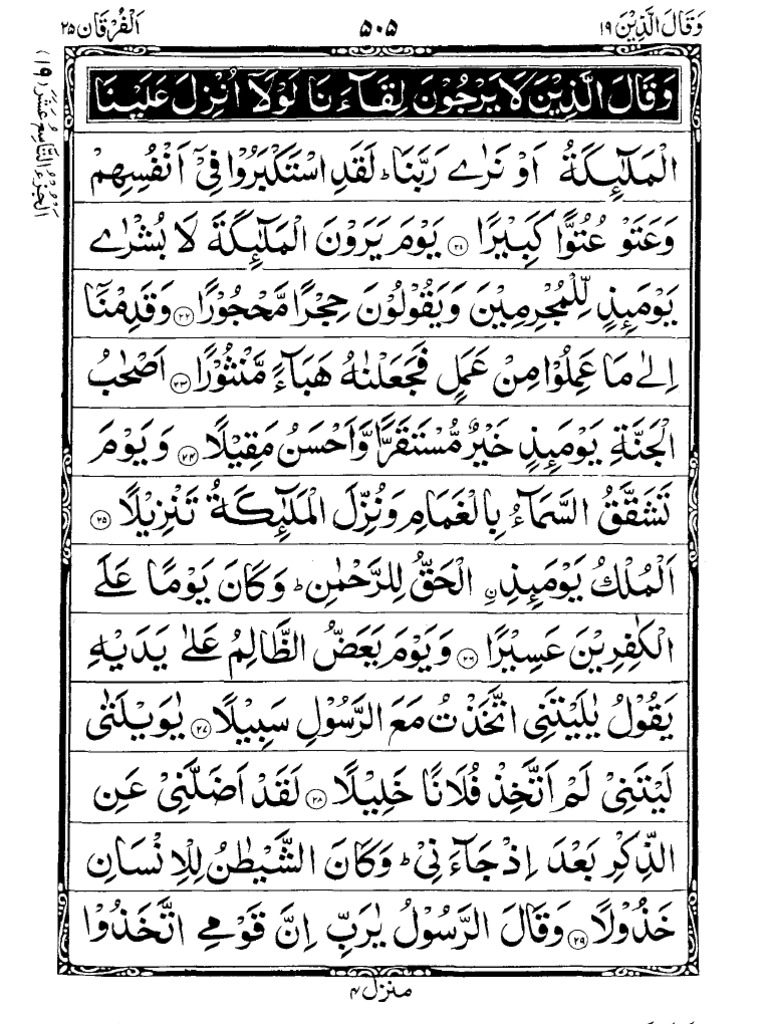 وَقَالَ الَّذِيْنَ ١٩
٥٠٥
اَلْفُرْقَان ٢٥
اَلْجُزْءُ التَّاسِعُ عَشَرَ (١٩)
وَقَالَ الَّذِيْنَ لَا يَرْجُوْنَ لِقَآءَنَا لَوْلَآ اُنْزِلَ عَلَيْنَا
الْمَلٰٓئِكَةُ اَوْ نَرٰى رَبَّنَا ؕ لَقَدِ اسْتَكْبَرُوْا فِيْٓ اَنْفُسِهِمْ
وَعَتَوْ عُتُوًّا كَبِيْرًا ﴿٢١﴾ يَوْمَ يَرَوْنَ الْمَلٰٓئِكَةَ لَا بُشْرٰى
يَوْمَئِذٍ لِّلْمُجْرِمِيْنَ وَيَقُوْلُوْنَ حِجْرًا مَّحْجُوْرًا ﴿٢٢﴾ وَقَدِمْنَآ
اِلٰى مَا عَمِلُوْا مِنْ عَمَلٍ فَجَعَلْنٰهُ هَبَآءً مَّنْثُوْرًا ﴿٢٣﴾ اَصْحٰبُ
الْجَنَّةِ يَوْمَئِذٍ خَيْرٌ مُّسْتَقَرًّا وَّاَحْسَنُ مَقِيْلًا ﴿٢٤﴾ وَيَوْمَ
تَشَقَّقُ السَّمَآءُ بِالْغَمَامِ وَنُزِّلَ الْمَلٰٓئِكَةُ تَنْزِيْلًا ﴿٢٥﴾
اَلْمُلْكُ يَوْمَئِذِ ۨالْحَقُّ لِلرَّحْمٰنِ ؕ وَكَانَ يَوْمًا عَلَى
الْكٰفِرِيْنَ عَسِيْرًا ﴿٢٦﴾ وَيَوْمَ يَعَضُّ الظَّالِمُ عَلٰى يَدَيْهِ
يَقُوْلُ يٰلَيْتَنِى اتَّخَذْتُ مَعَ الرَّسُوْلِ سَبِيْلًا ﴿٢٧﴾ يٰوَيْلَتٰى
لَيْتَنِيْ لَمْ اَتَّخِذْ فُلَانًا خَلِيْلًا ﴿٢٨﴾ لَقَدْ اَضَلَّنِيْ عَنِ
الذِّكْرِ بَعْدَ اِذْ جَآءَنِيْ ؕ وَكَانَ الشَّيْطٰنُ لِلْاِنْسَانِ
خَذُوْلًا ﴿٢٩﴾ وَقَالَ الرَّسُوْلُ يٰرَبِّ اِنَّ قَوْمِي اتَّخَذُوْا
منزل ٤